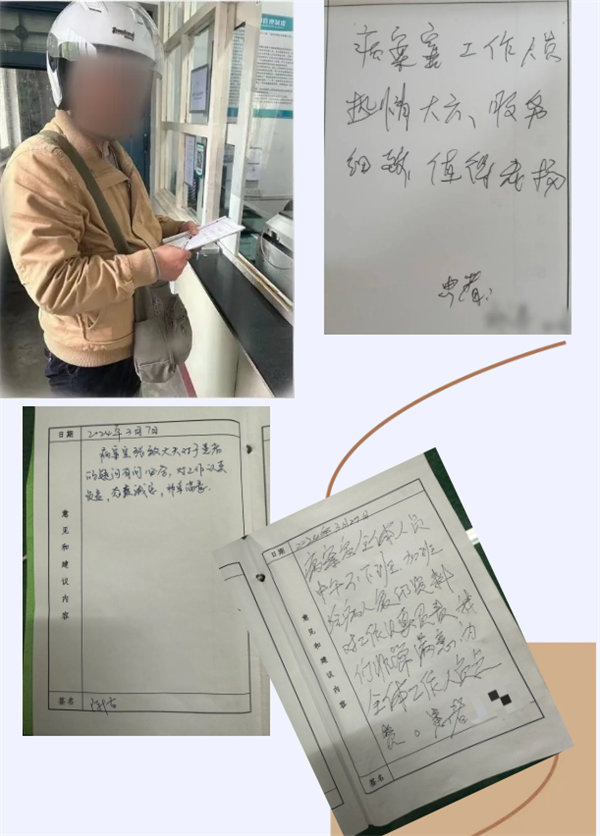 病案室工作人员
热情大方、服务
细致、值得表扬
患者:
日期 2024年3月7日
病案室 大夫对于患者
的疑问有问必答,对工作认真
负责,态度诚恳,非常满意.
意见和建议内容
签名
日期 2024年3月27日
病案室全体人员
中午不下班加班
给病人复印资料
对工作认真负责 我
们非常满意.为
全体工作人员点
赞。患者
意见和建议内容
签名